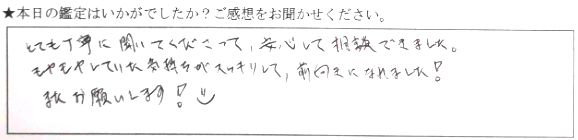 ★本日の鑑定はいかがでしたか？ご感想をお聞かせください。
とても丁寧に聞いてくださって、安心して相談できました。
モヤモヤしていた気持ちがスッキリして、前向きになれました！
またお願いします！